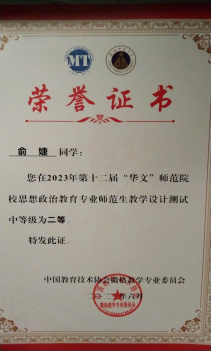 MT
荣誉证书
俞婕 同学：
您在2023年第十二届“华文”师范院
校思想政治教育专业师范生教学设计测试
中等级为二等
特发此证。
中国教育技术协会微格教学专业委员会
二〇二三年六月